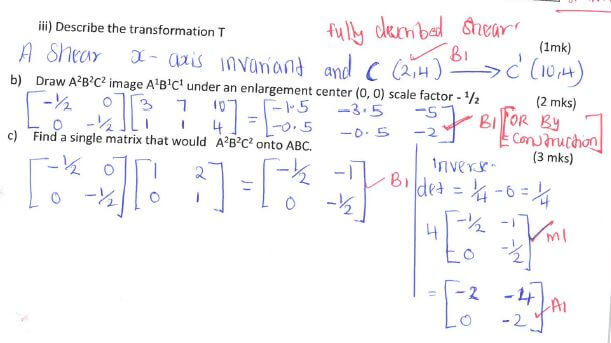 iii) Describe the transformation T
fully described shear
(1mk)
A Shear x-axis invariant and C (2,4) → C' (10,4)
B1
b) Draw A²B²C² image A¹B¹C¹ under an enlargement center (0, 0) scale factor - ½
(2 mks)
[-½ 0; 0 -½] [3 7 10; 1 1 4] = [-1.5 -3.5 -5; -0.5 -0.5 -2] B1 [OR By Construction]
c) Find a single matrix that would A²B²C² onto ABC.
(3 mks)
[-½ 0; 0 -½] [1 2; 0 1] = [-½ -1; 0 -½] B1
inverse-
det = ¼ - 0 = ¼
4 [-½ -1; 0 -½] M1
= [-2 -4; 0 -2] A1